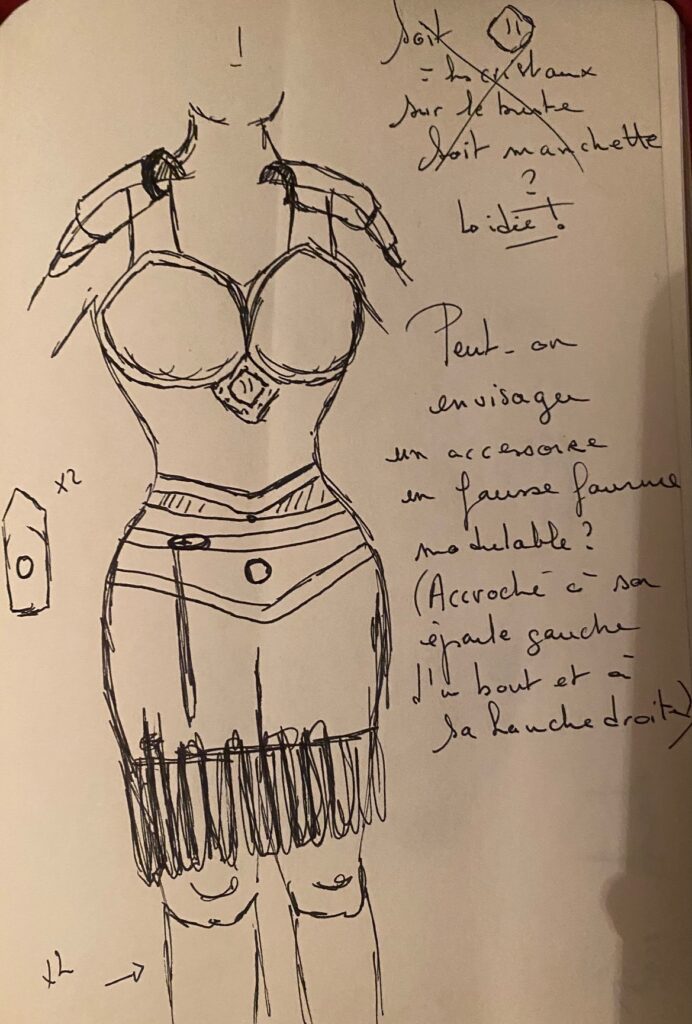 Soit
= les cristaux
sur le buste
Soit manchette
?
La idée !
Peut-on
envisager
un accessoire
en fausse fourrure
modulable ?
(Accroché à son
épaule gauche
d'un bout et à
sa hanche droite)
x2
x2 →